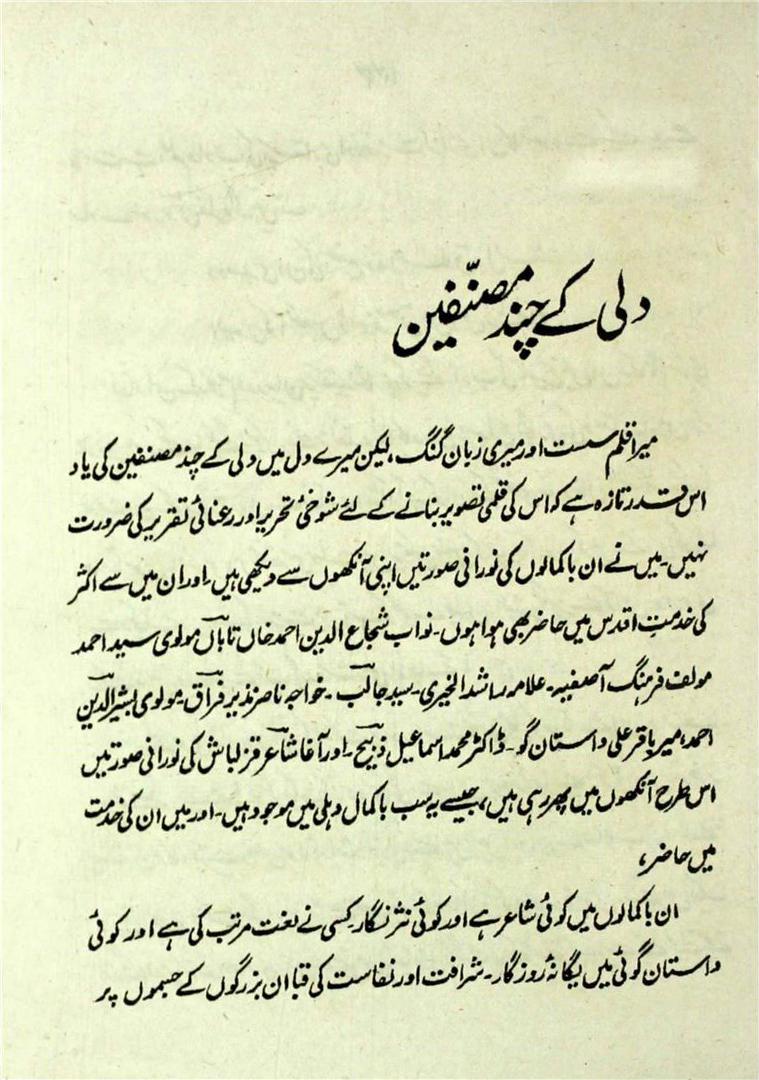 دلی کے چند مصنّفین
میرا قلم سست اور میری زبان گنگ، لیکن میرے دل میں دلی کے چند مصنفین کی یاد
اس قدر تازہ ہے کہ اس کی قلمی تصویر بنانے کے لئے شوخیٔ تحریر اور رعنائیٔ تقریر کی ضرورت
نہیں۔ میں نے ان باکمالوں کی نورانی صورتیں اپنی آنکھوں سے دیکھی ہیں۔ اور ان میں سے اکثر
کی خدمتِ اقدس میں حاضر بھی ہوا ہوں۔ نواب شجاع الدین احمد خاں تاباںؔ مولوی سید احمد
مولف فرہنگ آصفیہ۔ علامہ راشد الخیری۔ سید جالبؔ۔ خواجہ ناصر نذیر فراقؔ۔ مولوی بشیر الدین
احمد، میر باقر علی داستان گو۔ ڈاکٹر محمد اسماعیل ذبیحؔ۔ اور آغا شاعرؔ قزلباش کی نورانی صورتیں
اس طرح آنکھوں میں پھر رہی ہیں، جیسے یہ سب باکمال دہلی میں موجود ہیں۔ اور میں ان کی خدمت
میں حاضر،
ان باکمالوں میں کوئی شاعر ہے اور کوئی نثر نگار۔ کسی نے لغت مرتب کی ہے اور کوئی
داستان گوئی میں یگانۂ روزگار۔ شرافت اور نفاست کی قبا ان بزرگوں کے جسموں پر